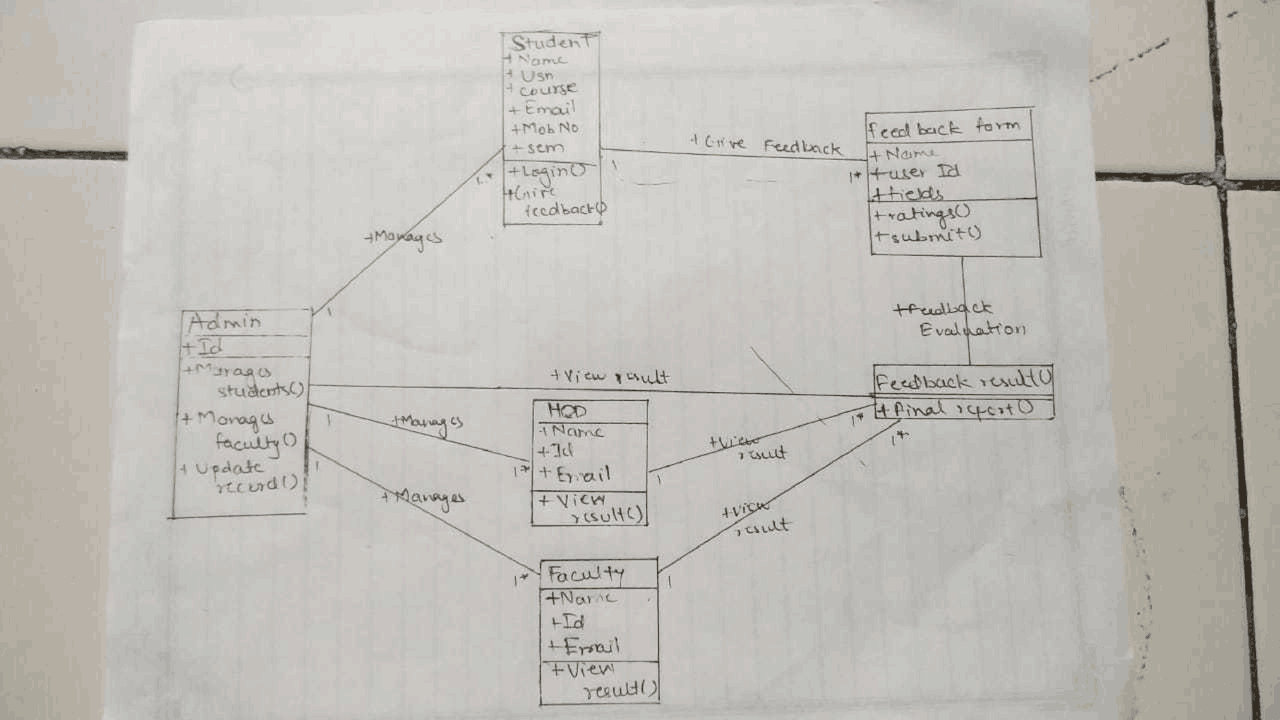 Student
+ Name
+ Usn
+ course
+ Email
+ Mob No
+ sem
+ Login()
+Give
feedback()
+ Give Feedback
1
1*
feedback form
+ Name
+ user Id
+ fields
+ ratings()
+ submit()
1.*
+Manages
1
Admin
+ Id
+ Manages
students()
+ Manages
faculty()
+ Update
record()
+Feedback
Evaluation
+ View result
Feedback result()
+ Final report()
1
+Manages
1*
HOD
+ Name
+ Id
+ Email
+ View
result()
1
+View
result
1*
1
+ Manages
1*
Faculty
+ Name
+ Id
+ Email
+ View
result()
1
+View
result
1*